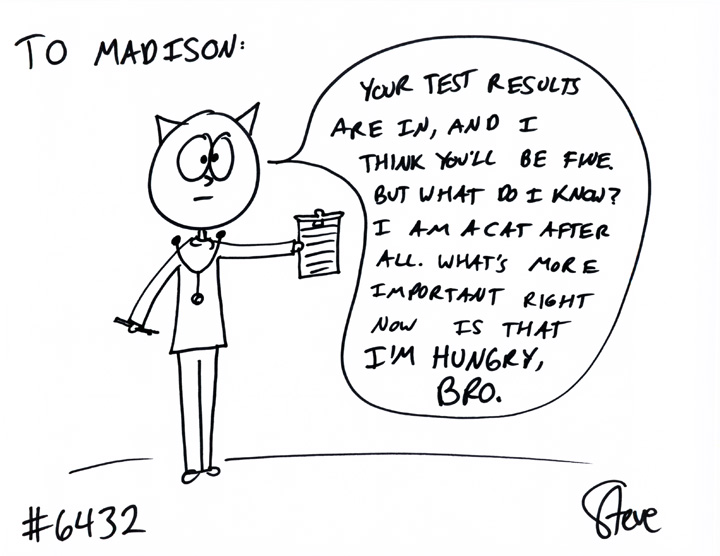 TO MADISON:
YOUR TEST RESULTS
ARE IN, AND I
THINK YOU'LL BE FINE.
BUT WHAT DO I KNOW?
I AM A CAT AFTER
ALL. WHAT'S MORE
IMPORTANT RIGHT
NOW IS THAT
I'M HUNGRY,
BRO.
#6432
Steve